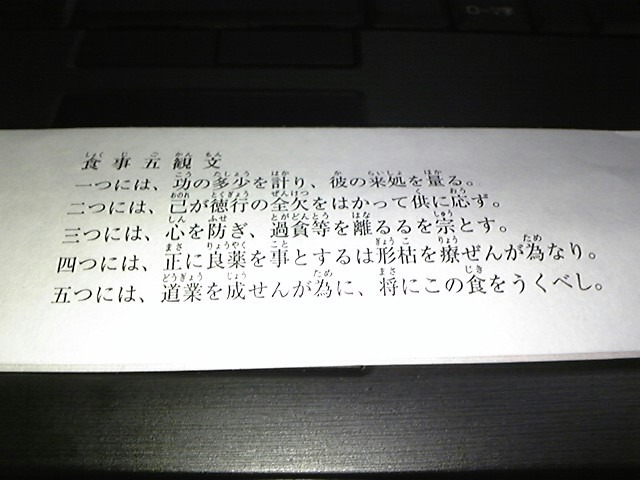 食事五観文
一つには、功の多少を計り、彼の来処を量る。
二つには、己が徳行の全欠をはかって供に応ず。
三つには、心を防ぎ、過貪等を離るるを宗とす。
四つには、正に良薬を事とするは形枯を療ぜんが為なり。
五つには、道業を成せんが為に、将にこの食をうくべし。